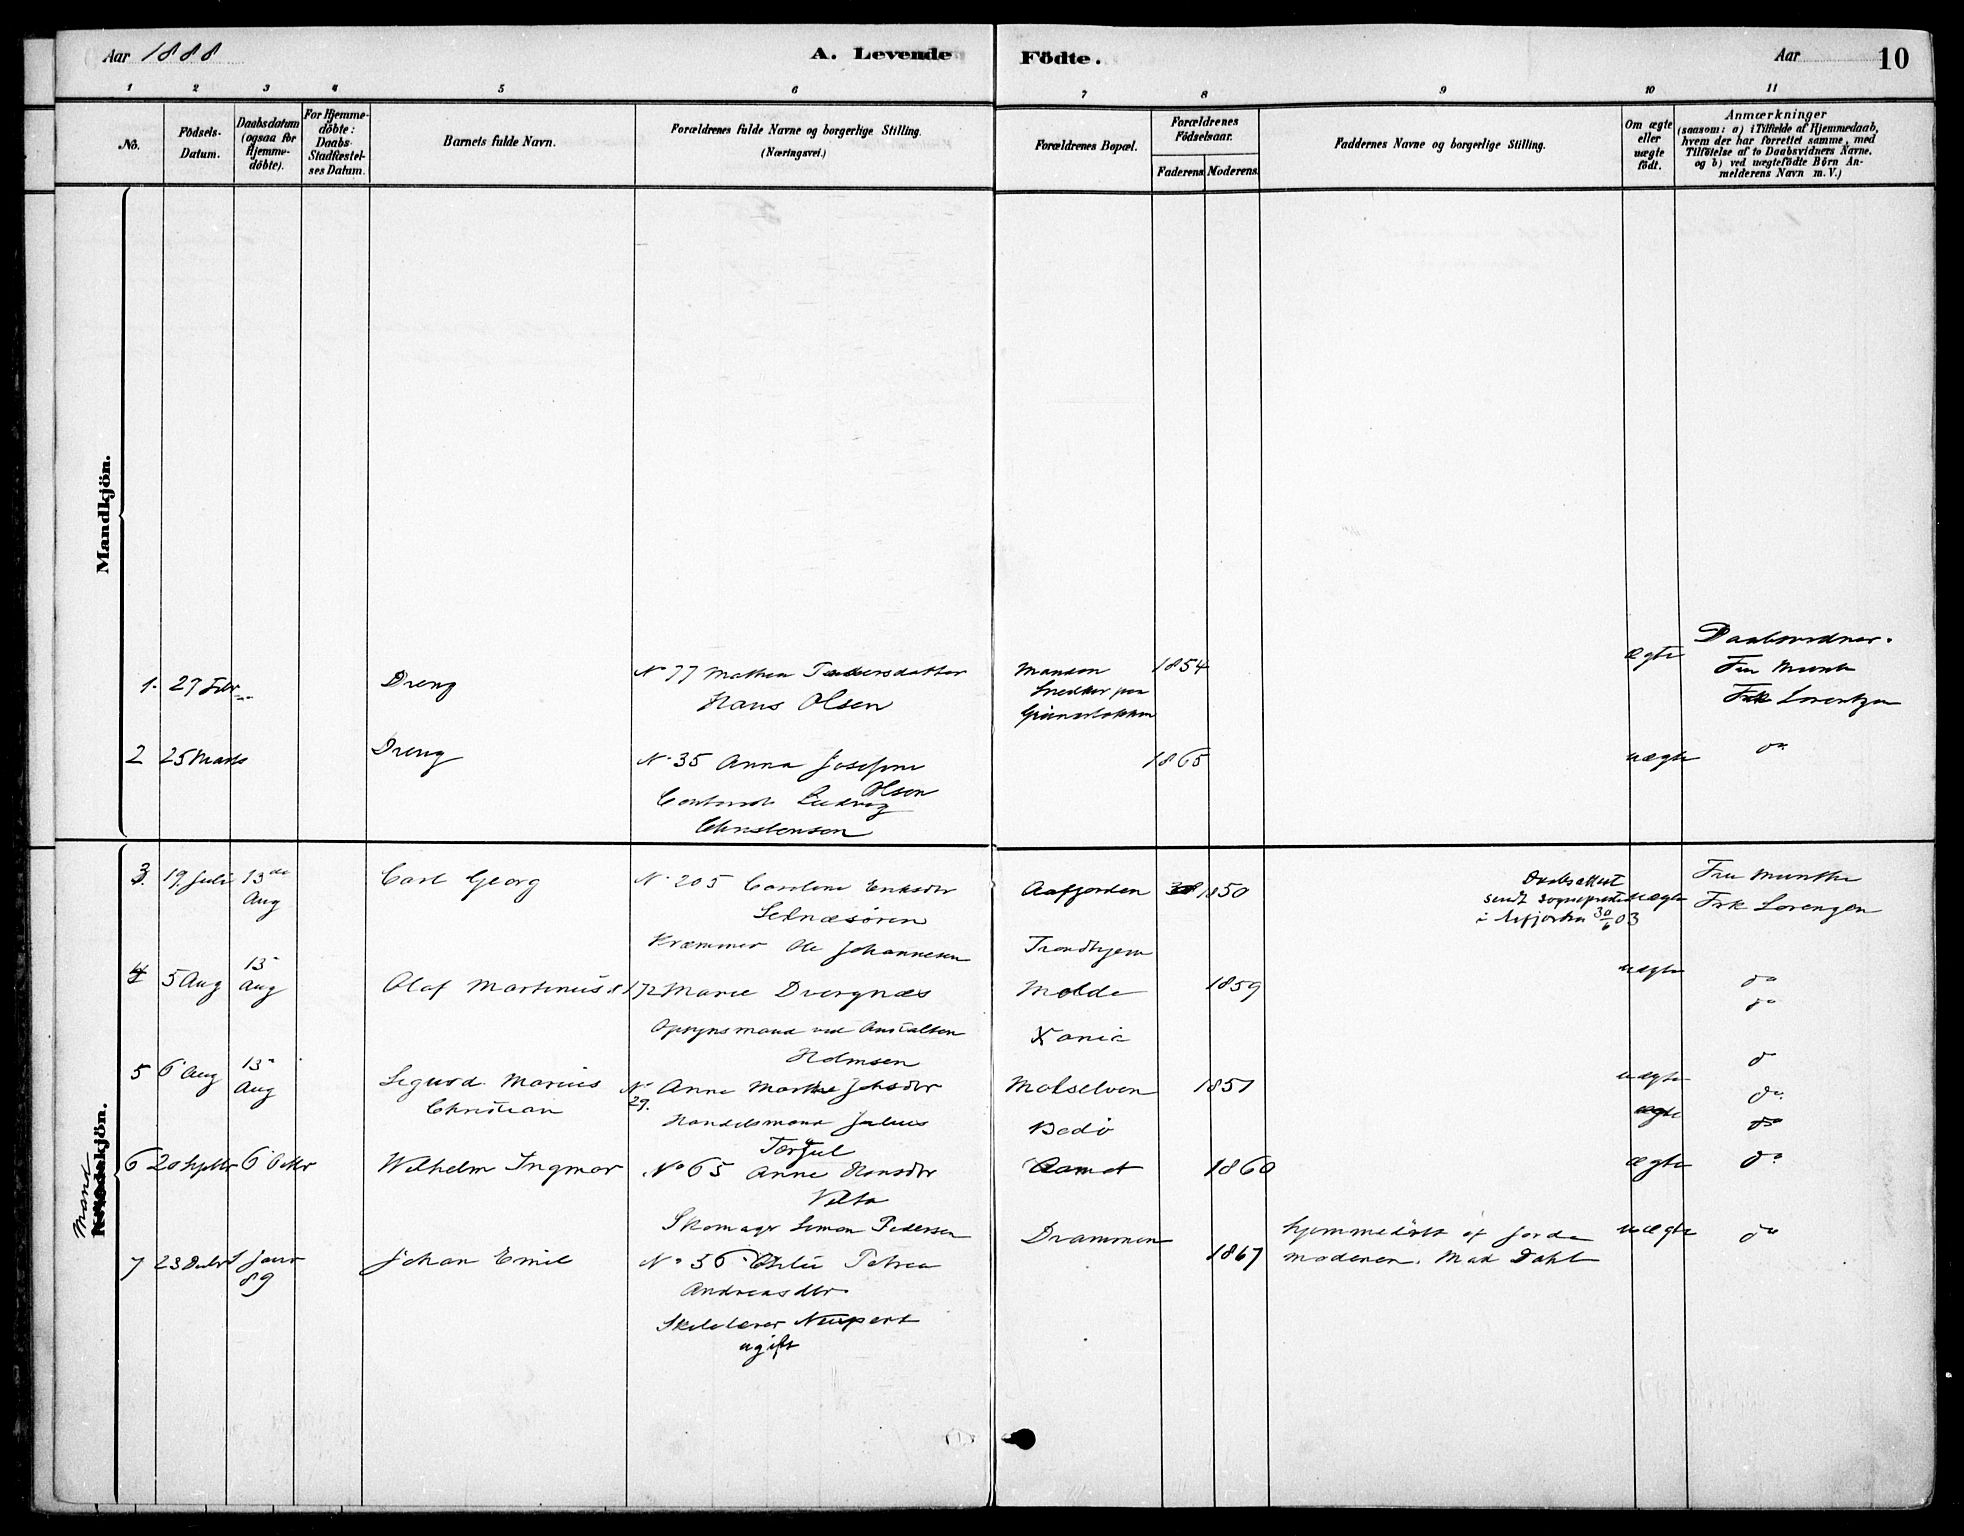 Aar 1888
A. Levende Födte.
Aar
10
1 2 3 4 5 6 7 8 9 10 11
No.
Födsels-Datum.
Daabsdatum (ogsaa for Hjemme-döbte).
For Hjemme-döbte: Daabs-Stadfæstel-ses Datum.
Barnets fulde Navn.
Forældrenes fulde Navne og borgerlige Stilling.
(Næringsvei.)
Forældrenes Bopæl.
Forældrenes Födselsaar.
Faderens
Moderens
Faddernes Navne og borgerlige Stilling.
Om ægte eller uægte födt.
Anmærkninger
(saasom: a) i Tilfælde af Hjemmedaab,
hvem der har forrettet samme, med
Tilföielse af to Daabsvidners Navne.
og b) ved uægtefödte Börn An-
melderens Navn m. V.)
Mandkjön.
1. 27 Febr Dreng No 77 Mathea 1854 ægte
Hans Olsen
Snedker paa
Fru Munthe
Frk Lorentzen
2 25 Marts Dreng No 35 Anna Josefine 1865 uægte do
Olsen
Ludvig
Christensen
Mand
Kvindekjön.
3. 19. Juli 13de Aug Carl Georg No 205 Caroline Eriksdtr Aafjorden 1850 uægte Fru Munthe
Selnæsören
Daabsattest
sendt Sognepresten
i Aafjorden 30/6 03
Frk Lorenzen
Kræmmer Ole Johannesen Trondhjem
4 5 Aug 13 Aug Olaf Martinius 172 Marie Dvergnæs Molde 1859 uægte do
do
Opsynsmand ved Anstalten Xania
Holmsen
5 6 Aug 13 Aug Sigurd Marius No 29. Anne Marthe Johsdtr Molselven 1851 uægte do
Christian
Handelsmand Julius Bodö
Torjul
6 20 Septbr 6 Oktbr Wilhelm Ingmar No 65 Anne Hansdtr Aamot 1860 ægte do
Skomager Simon Pedersen Drammen uægte do
7 23 Decbr 1 Janr 89 Johan Emil No 56 Petrea 1867
Andreasdtr
hjemmedöbt af Jorde
moderen. Mad Dahl
Skolelærer Neupert
ugift